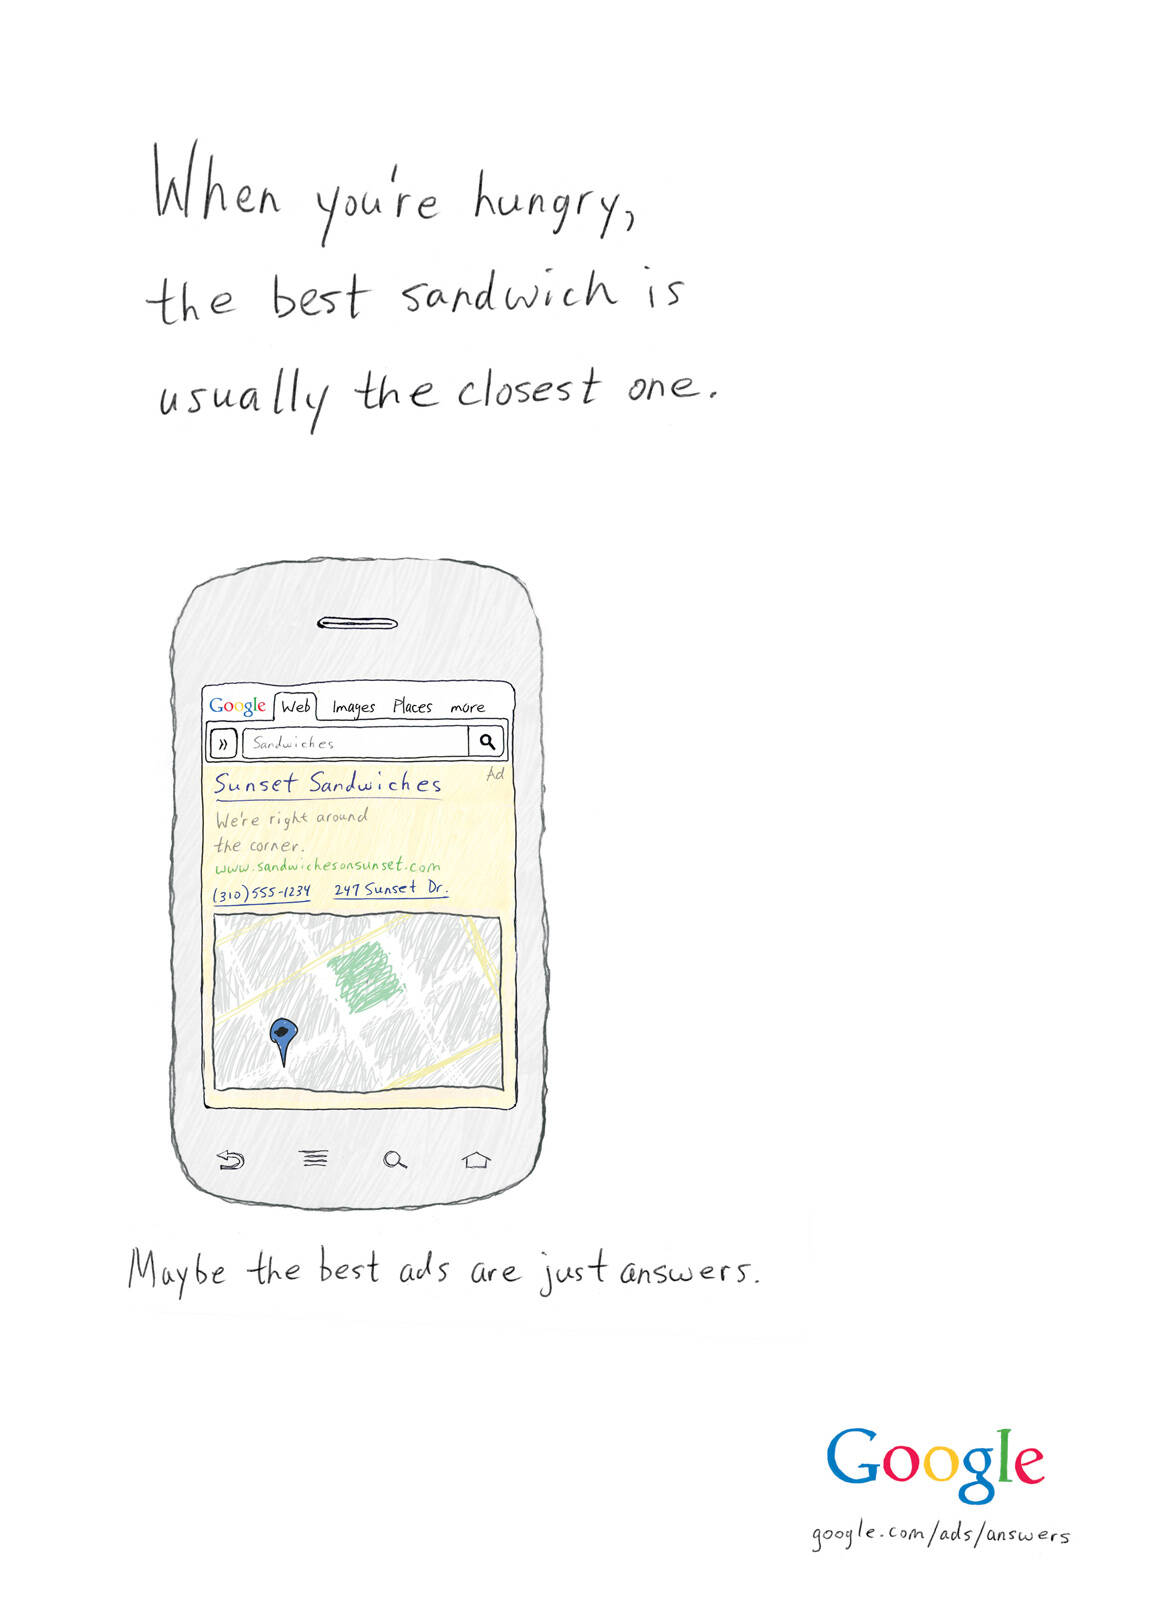 When you're hungry,
the best sandwich is
usually the closest one.
Google Web Images Places more
» Sandwiches
Ad
Sunset Sandwiches
We're right around
the corner.
www.sandwichesonsunset.com
(310)555-1234 247 Sunset Dr.
Maybe the best ads are just answers.
Google
google.com/ads/answers